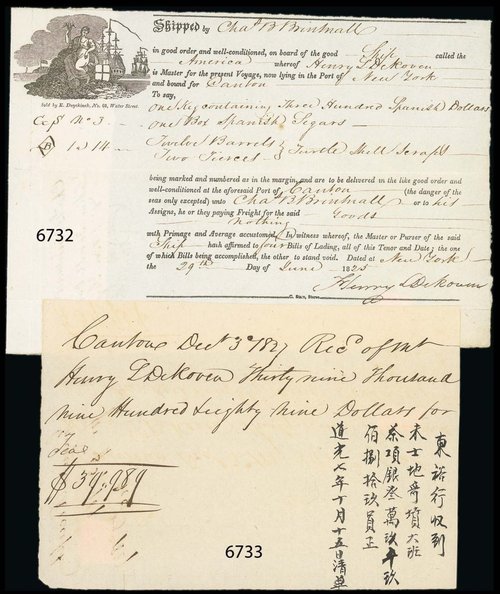 Shipped by Chas B Brintnall
in good order and well-conditioned, on board of the good Ship called the
America whereof Henry L DeKoven
is Master for the present Voyage, now lying in the Port of New York
and bound for Canton
To say,
Sold by R. Duyckinck, No. 68, Water Street.
one Keg containing Three Hundred Spanish Dollars
No 3
one Box Spanish Segars
B 1 @ 14
Twelve Barrels
Two Tierces } Turtle Shell Scraps
being marked and numbered as in the margin, and are to be delivered in the like good order and
well-conditioned at the aforesaid Port of Canton (the danger of the
seas only excepted) unto Chas B Brintnall or to his
Assigns, he or they paying Freight for the said Goods
Nothing
with Primage and Average accustomed. In witness whereof, the Master or Purser of the said
Ship hath affirmed to four Bills of Lading, all of this Tenor and Date; the one
of which Bills being accomplished, the other to stand void. Dated at New York
the 29th Day of June 1825
Henry L DeKoven
6732
Canton Decr 3d 1827 Recd of Mr
Henry L DeKoven Thirty nine Thousand
nine Hundred Eighty nine Dollars for
Teas
$39,989
東裕行收到
未士地哥墳大班
茶項銀叁萬玖千玖
佰捌拾玖員正
道光七年十月十五日清單
6733